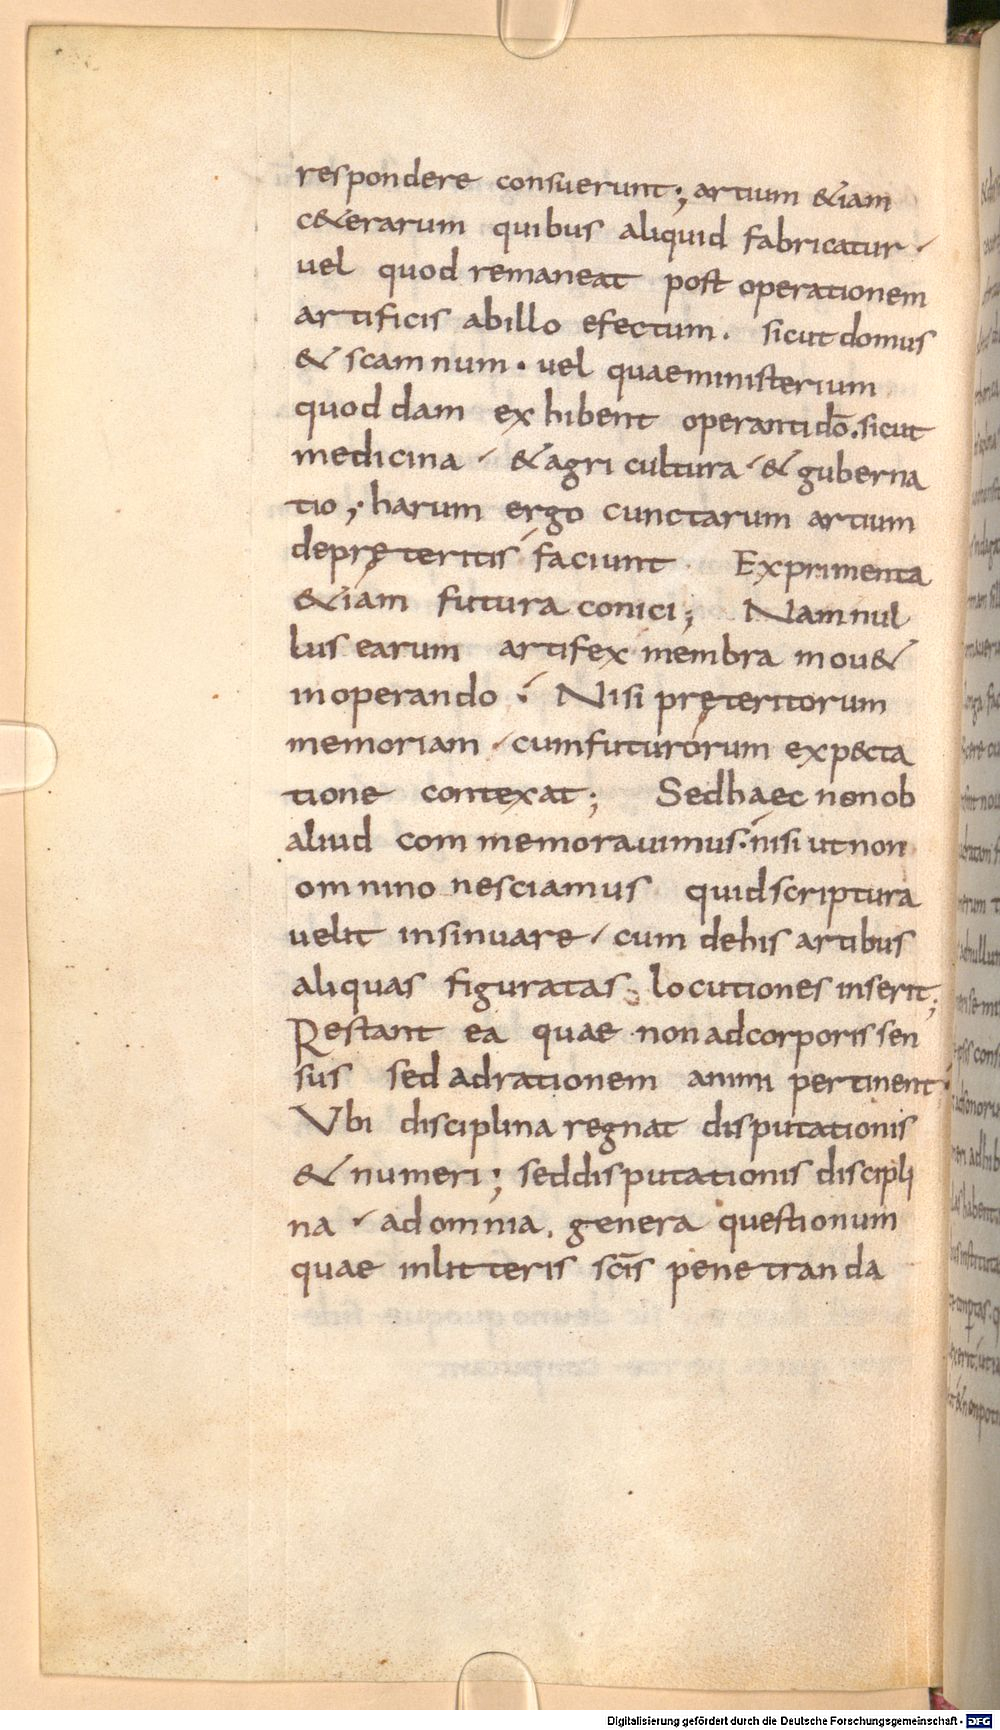 respondere consuerunt; artium &iam
c&erarum quibus aliquid fabricatur ·
uel quod remaneat post operationem
artificis abillo efectum. sicut domus
& scamnum · uel quaeministerium
quoddam exhibent operanti dō. sicut
medicina · & agricultura · & guberna
tio; harum ergo cunctarum artium
depręteritis faciunt Exprimenta
&iám futura conici; Nam nul
lus earum artifex membra mou&
inoperando · Nisi pręteritorum
memoriam · cumfuturórum exp&cta
tione contexat; Sedhaec nonob
aliud commemorauimus · nisi utnon
omnino nesciamus quidscriptura
uelit insinuare · cum dehis artibus
aliquas figuratas locutiones inserit;
Restant ea quae nonadcorporis sen
sus sed adrationem animi pertinent
Vbi disciplina regnat disputationis
& numeri; seddisputationis discipli
na · ad omnia. genera questionum
quae inlitteris scīs penetranda
Digitalisierung gefördert durch die Deutsche Forschungsgemeinschaft - DFG